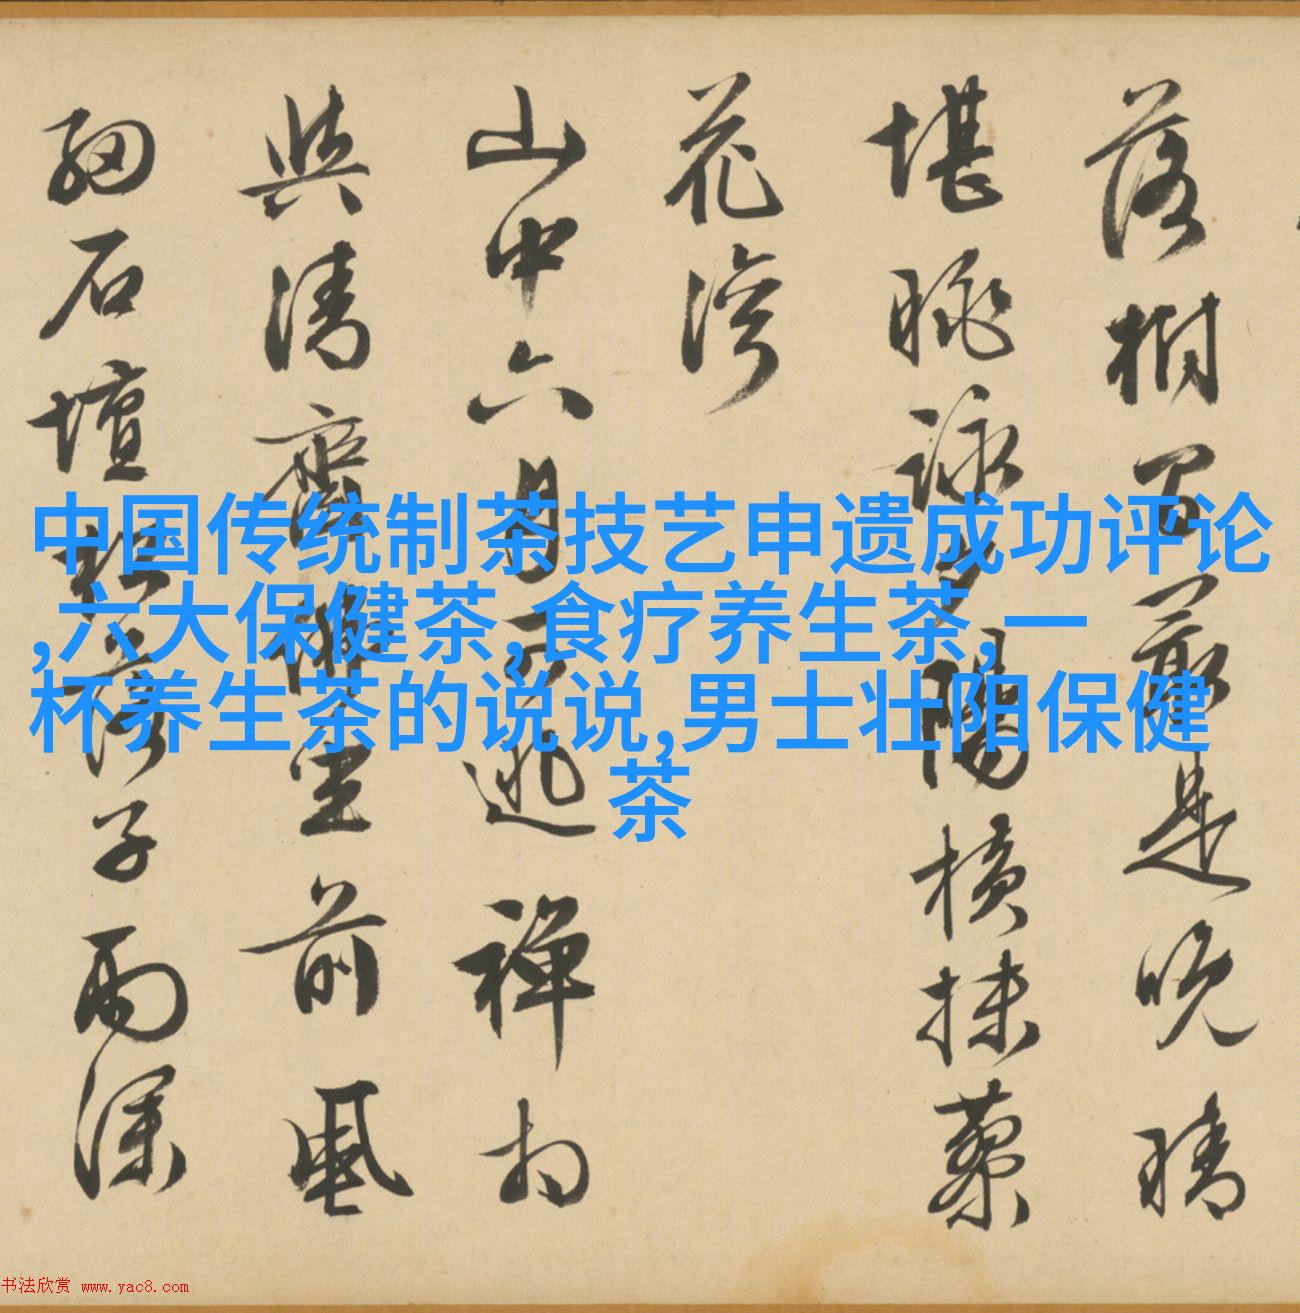 落樹蜀最是晚晴
堪眺詠夕陽橫抹藥
花灣
山中六月一逃禪相
與清齋坐前風
細石壇松落子雨深
中国传统制茶技艺申遗成功评论
,六大保健茶,食疗养生茶,一
杯养生茶的说说,男士壮阳保健
茶
书法欣赏 www.yac8.com